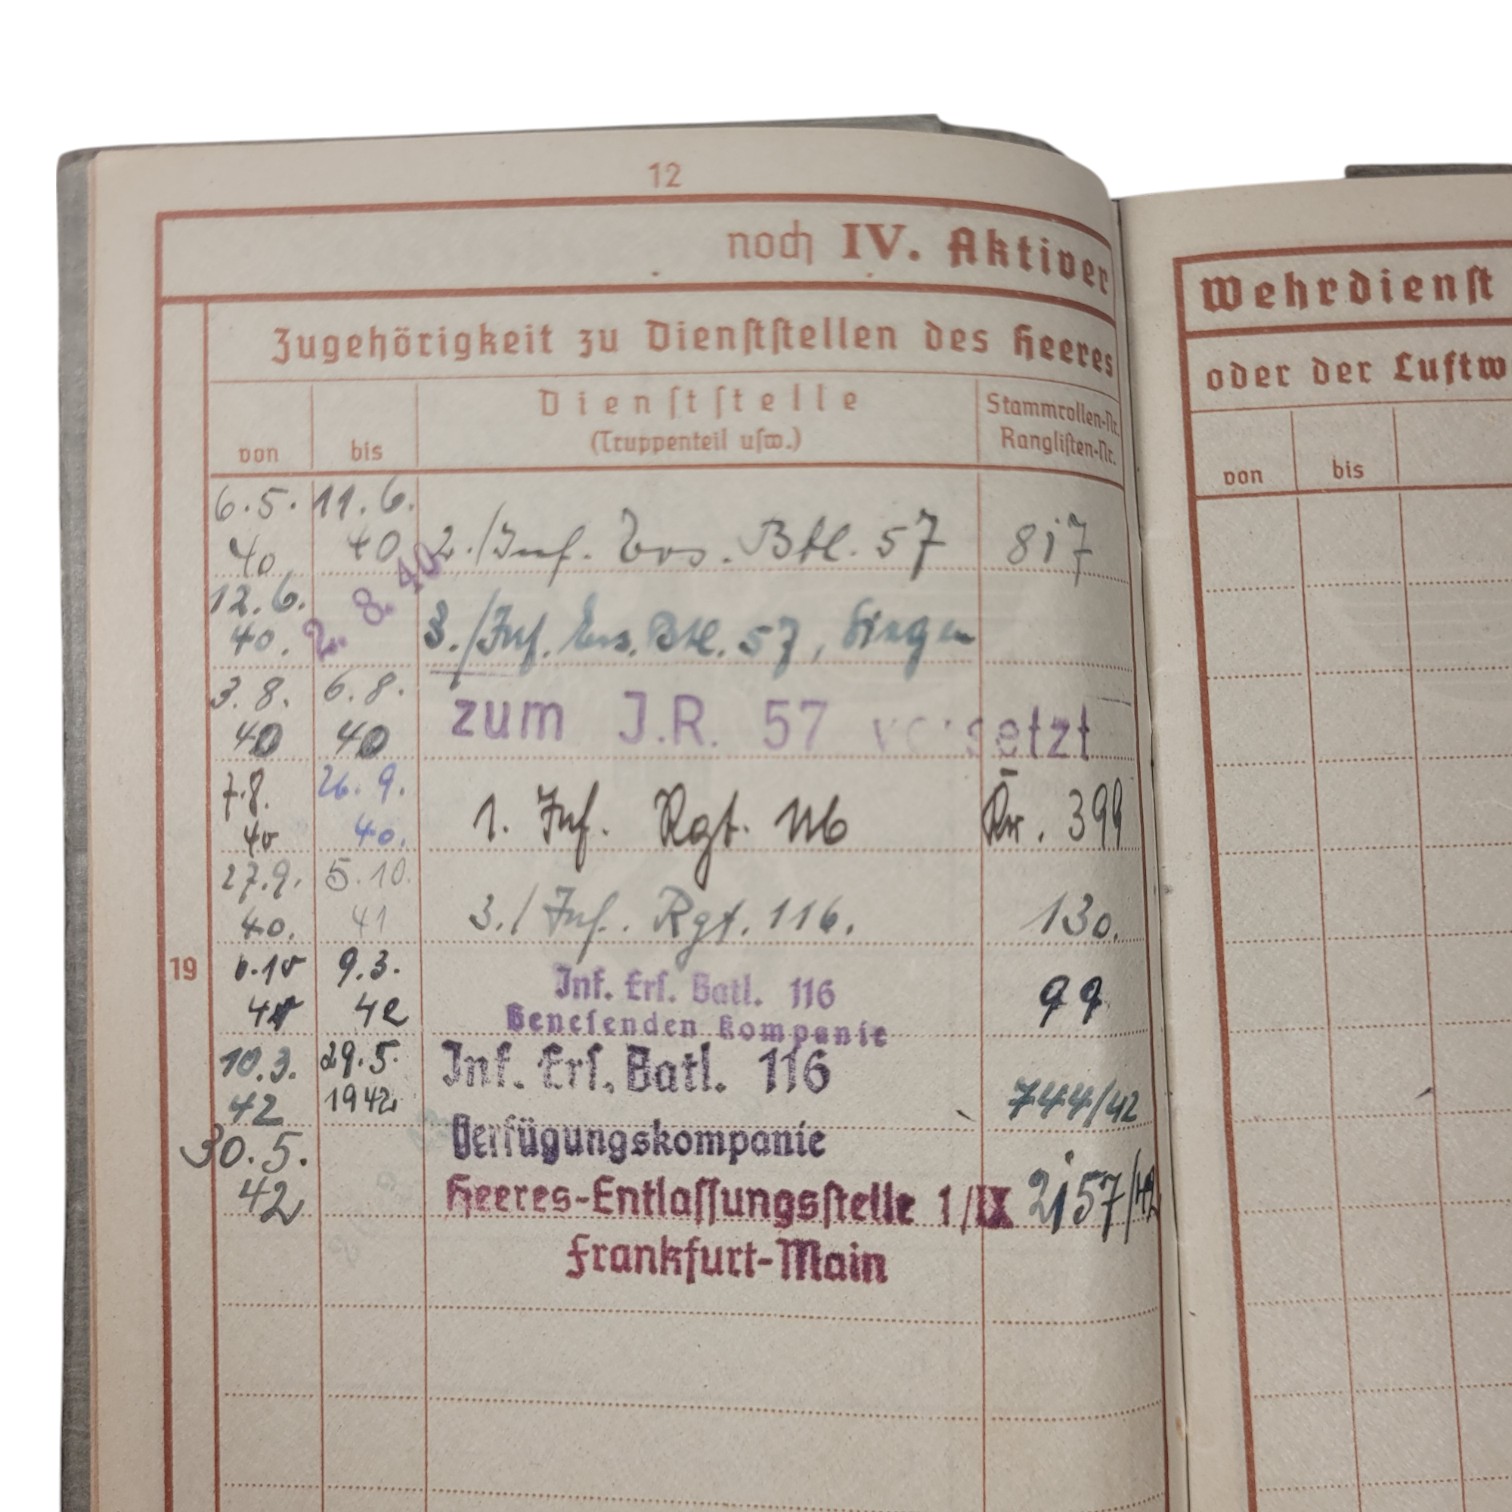 12
noch IV. Aktiver
Zugehörigkeit zu Dienststellen des Heeres
von bis Dienststelle (Truppenteil usw.) Stammrollen-Nr. Ranglisten-Nr.
6.5. 40 11.6. 40 2./Inf. Ers. Btl. 57 817
12.6. 40. 2. 8. 40 3./Inf. Ers. Btl. 57, Siegen
3.8. 40 6.8. 40 zum J.R. 57 versetzt
7.8. 40 26.9. 40. 1. Inf. Rgt. 116 Kr. 399
27.9. 40. 5.10. 41 3./Inf. Rgt. 116. 130.
19 6.10 41 9.3. 42 Inf. Ers. Batl. 116 99
Genesenden Kompanie
10.3. 42 29.5. 1942 Inf. Ers. Batl. 116 744/42
Verfügungskompanie
30.5. 42 Heeres-Entlassungsstelle 1/IX 2157/42
Frankfurt-Main
Wehrdienst
oder der Luftw
von bis